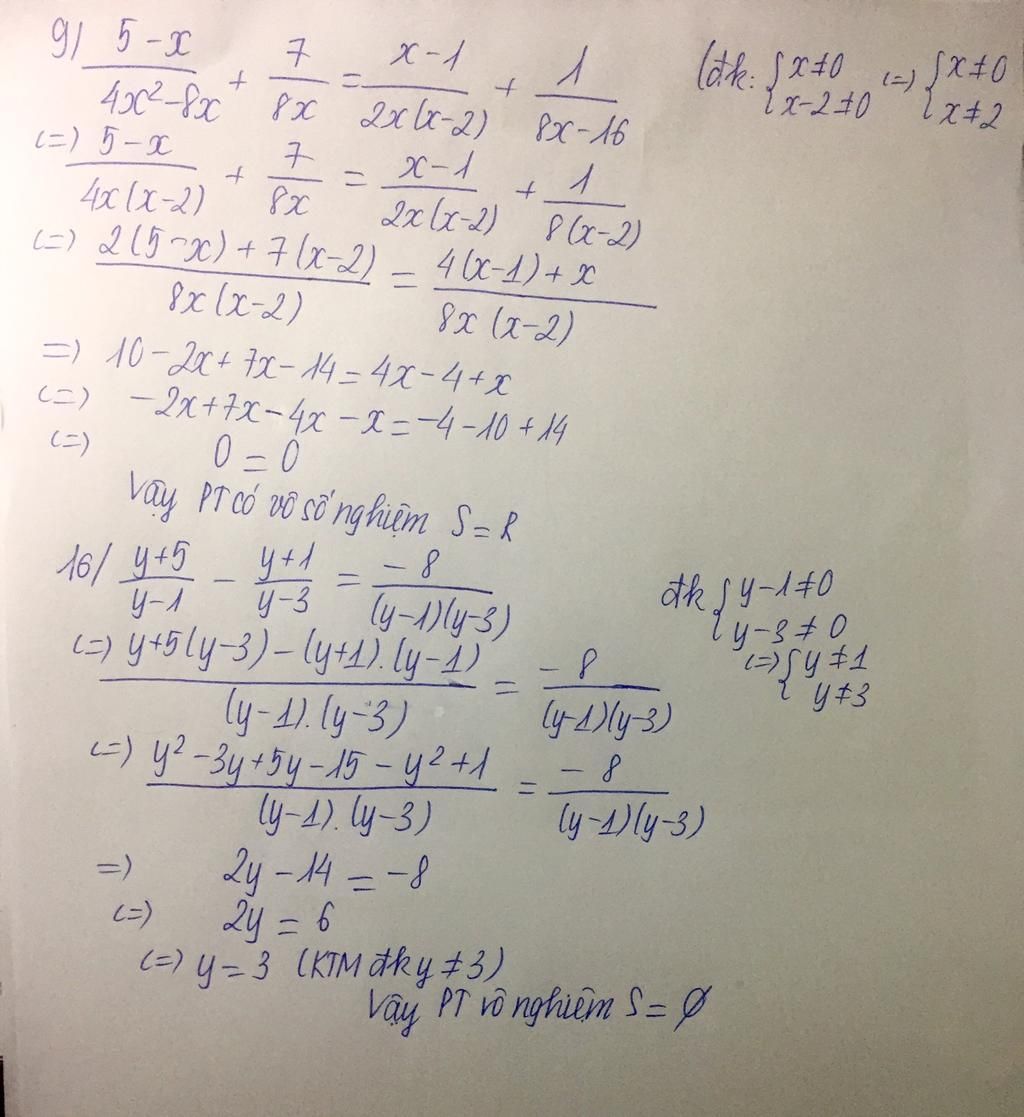 9/ (5-x)/(4x²-8x) + 7/(8x) = (x-1)/(2x(x-2)) + 1/(8x-16) (đk: {x≠0 x-2≠0 (=) {x≠0 x≠2
(=) (5-x)/(4x(x-2)) + 7/(8x) = (x-1)/(2x(x-2)) + 1/(8(x-2))
(=) (2(5-x)+7(x-2))/(8x(x-2)) = (4(x-1)+x)/(8x(x-2))
=) 10-2x+7x-14=4x-4+x
(=) -2x+7x-4x-x=-4-10+14
(=) 0=0
Vậy PT có vô số nghiệm S=R
16/ (y+5)/(y-1) - (y+1)/(y-3) = -8/((y-1)(y-3)) đk {y-1≠0 y-3≠0
(=) {y≠1 y≠3
(=) (y+5(y-3)-(y+1).(y-1))/((y-1).(y-3)) = -8/((y-1)(y-3))
(=) (y²-3y+5y-15-y²+1)/((y-1).(y-3)) = -8/((y-1)(y-3))
=) 2y-14=-8
(=) 2y=6
(=) y=3 (KTM đk y≠3)
Vậy PT vô nghiệm S=∅